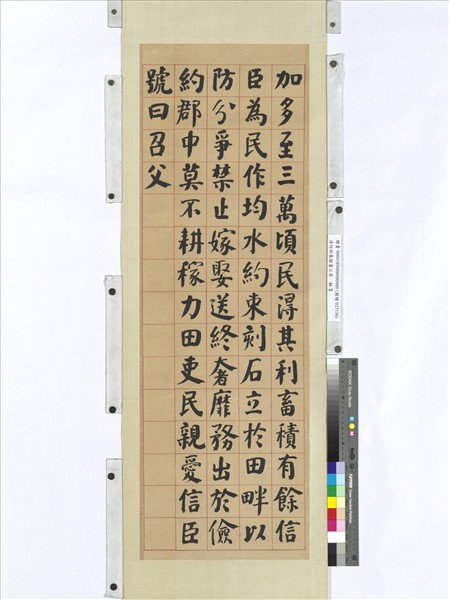 加多至三萬頃民得其利畜積有餘信
臣為民作均水約束刻石立於田畔以
防分爭禁止嫁娶送終奢靡務出於儉
約郡中莫不耕稼力田吏民親愛信臣
號曰召父